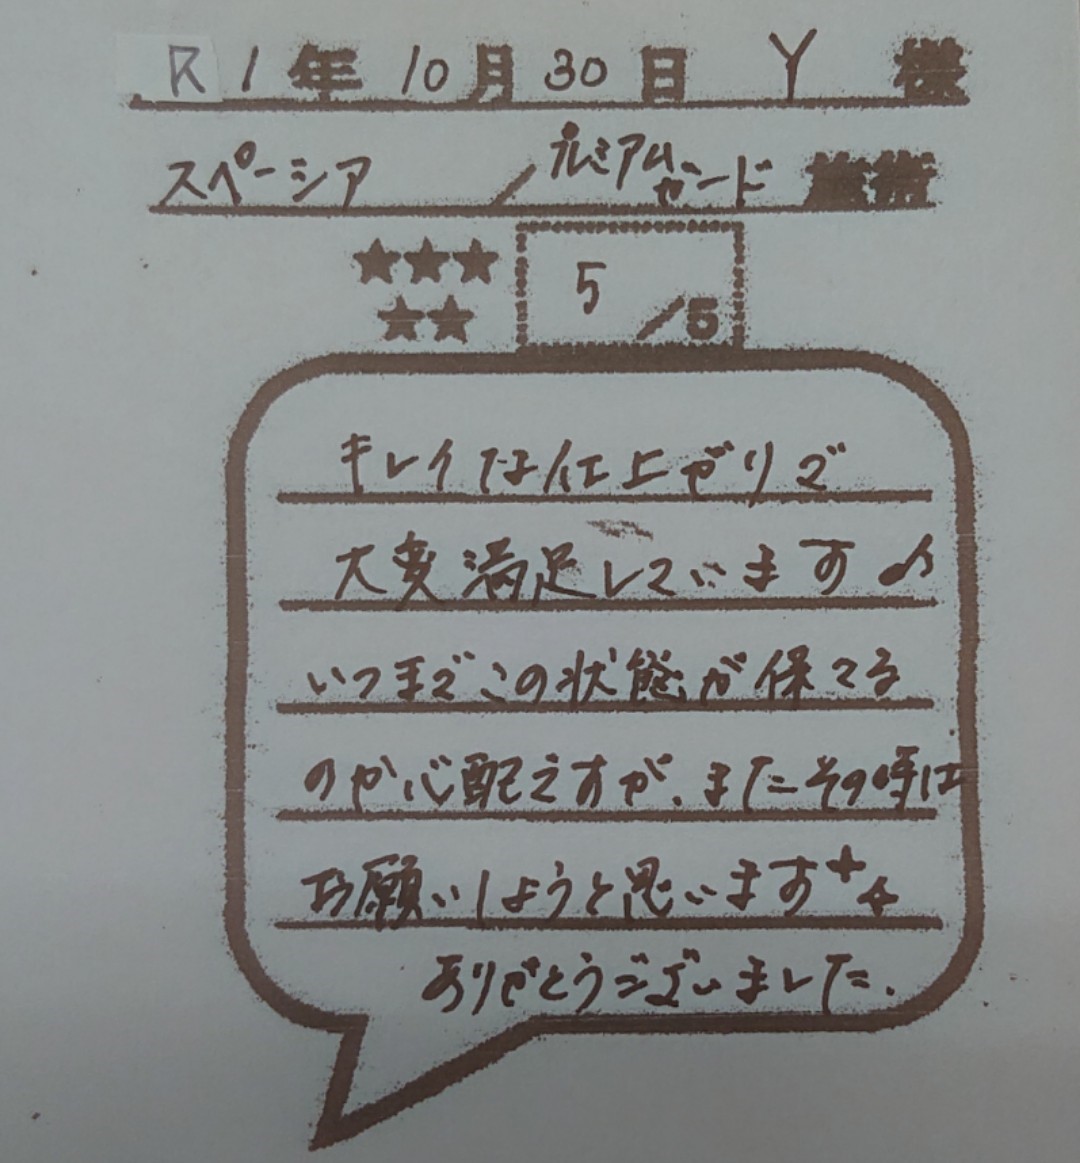 R1年10月30日 Y 様
スペーシア / プレミアムガード 施術
★★★
★★
5/5
キレイな仕上がりで
大変満足しています♪
いつまでこの状態が保てる
のか心配ですが、またその時は
お願いしようと思います✦✦
ありがとうございました.